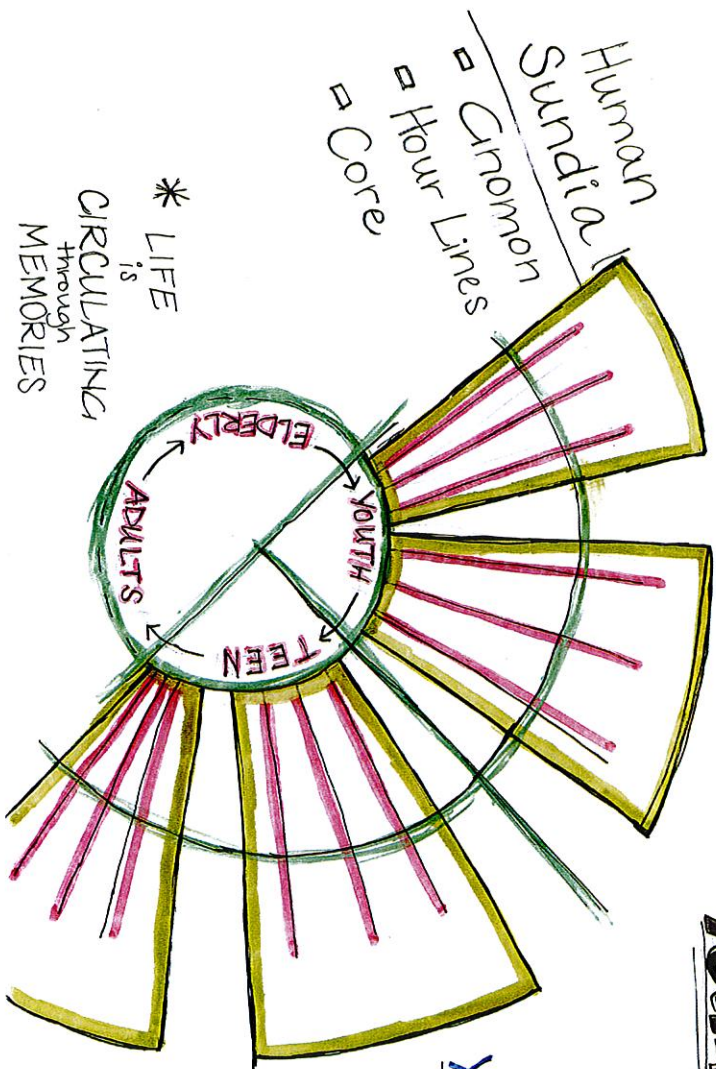 Human
Sundial
Gnomon
Hour Lines
Core
* LIFE
is
CIRCULATING
through
MEMORIES
YOUTH
TEEN
ADULTS
ELDERLY